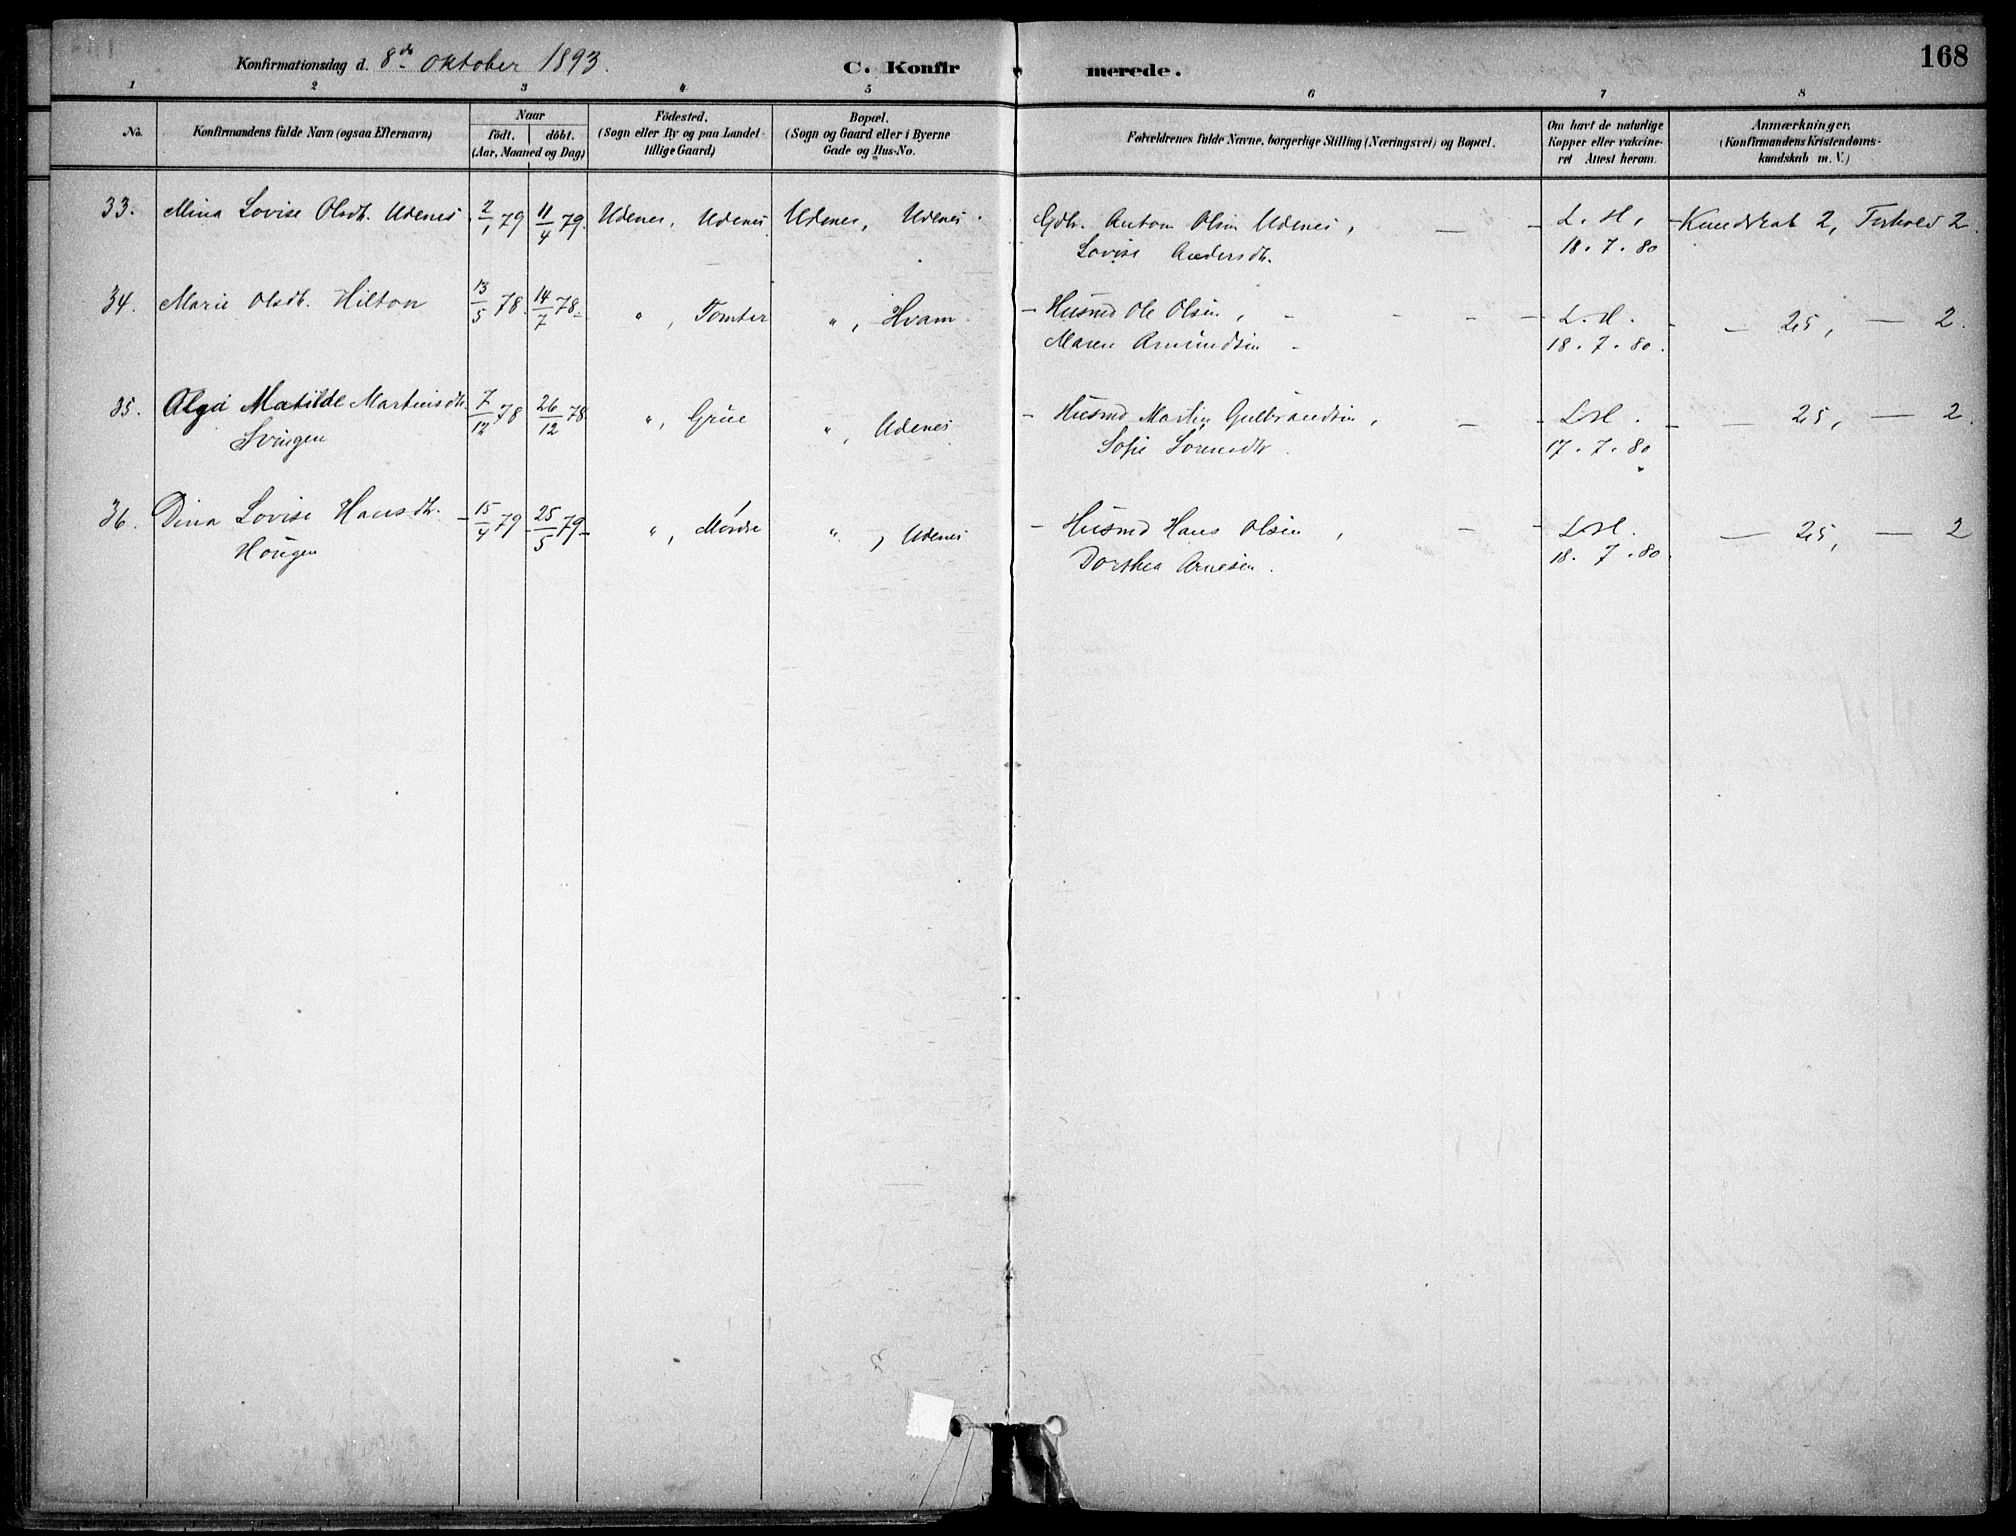 Konfirmationsdag d. 8de Oktober 1893.
C. Konfirmerede.
168
1 2 3 4 5 6 7 8
No.
Konfirmandens fulde Navn (ogsaa Efternavn)
Naar
födt. döbt.
(Aar, Maaned og Dag)
Födested.
(Sogn eller By og paa Landet
tillige Gaard)
Bopæl.
(Sogn og Gaard eller i Byerne
Gade og Hus-No.
Forældrenes fulde Navne, borgerlige Stilling (Næringsvei) og Bopæl.
Om havt de naturlige
Kopper eller vakcine-
ret Attest herom.
Anmærkninger.
(Konfirmandens Kristendoms-
kundskab m. V.)
33. Mina Lovise Olsdt. Udenes 2/1 79 11/4 79. Udenes, Udenes Udenes, Udenes. Gdbr. Anton Olsen Udenes, — - L. H. - Kundskab 2, Forhold 2.
Lovise Andersdt. 18. 7. 80
34. Marie Olsdt. Hilton 13/5 78. 14/7 78. " , Tomter " , Hvam. - Husmd Ole Olsen, - - - - L. H. - — 2,5, — 2.
Maren Amundsen - 18. 7. 80.
35. Olga Matilde Martinsdt. 7/12 78 26/12 78 " , Grue " , Udenes - Husmd Martin Gulbrandsen, — - L. H. - — 2,5, — 2.
Svingen Sofie Sørensdt. 17. 7. 80
36. Dina Lovise Hansdt. 15/4 79 25/5 79 " , Mørdre " , Udenes - Husmd Hans Olsen, — - L. H. — 2,5, — 2
Hougen Dorthea Arnesen. 18. 7. 80.